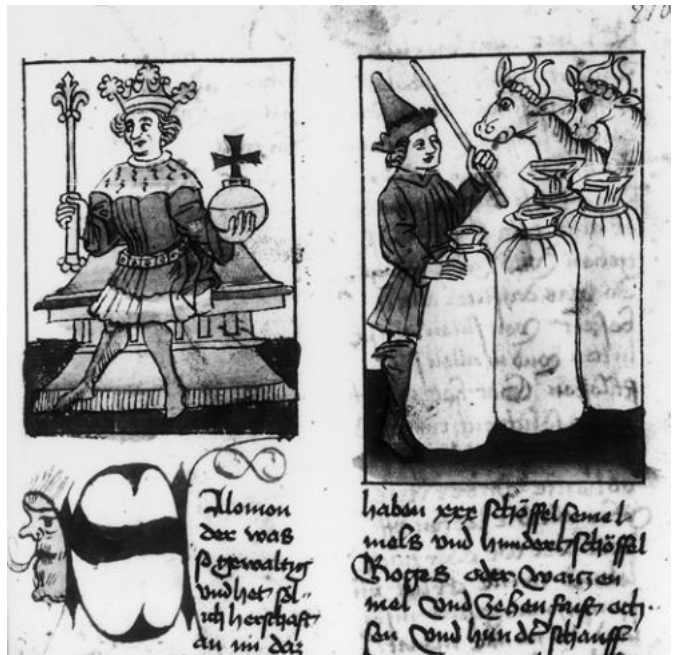 Salomon
der was
so gewaltig
vnd het söl-
ich herschafft
an im daz
haben xxx schöffel semel
mels vnd hundert schöffel
Roges oder waitzen
mel vnd Zehen faist och-
sen vnd hundt schauff